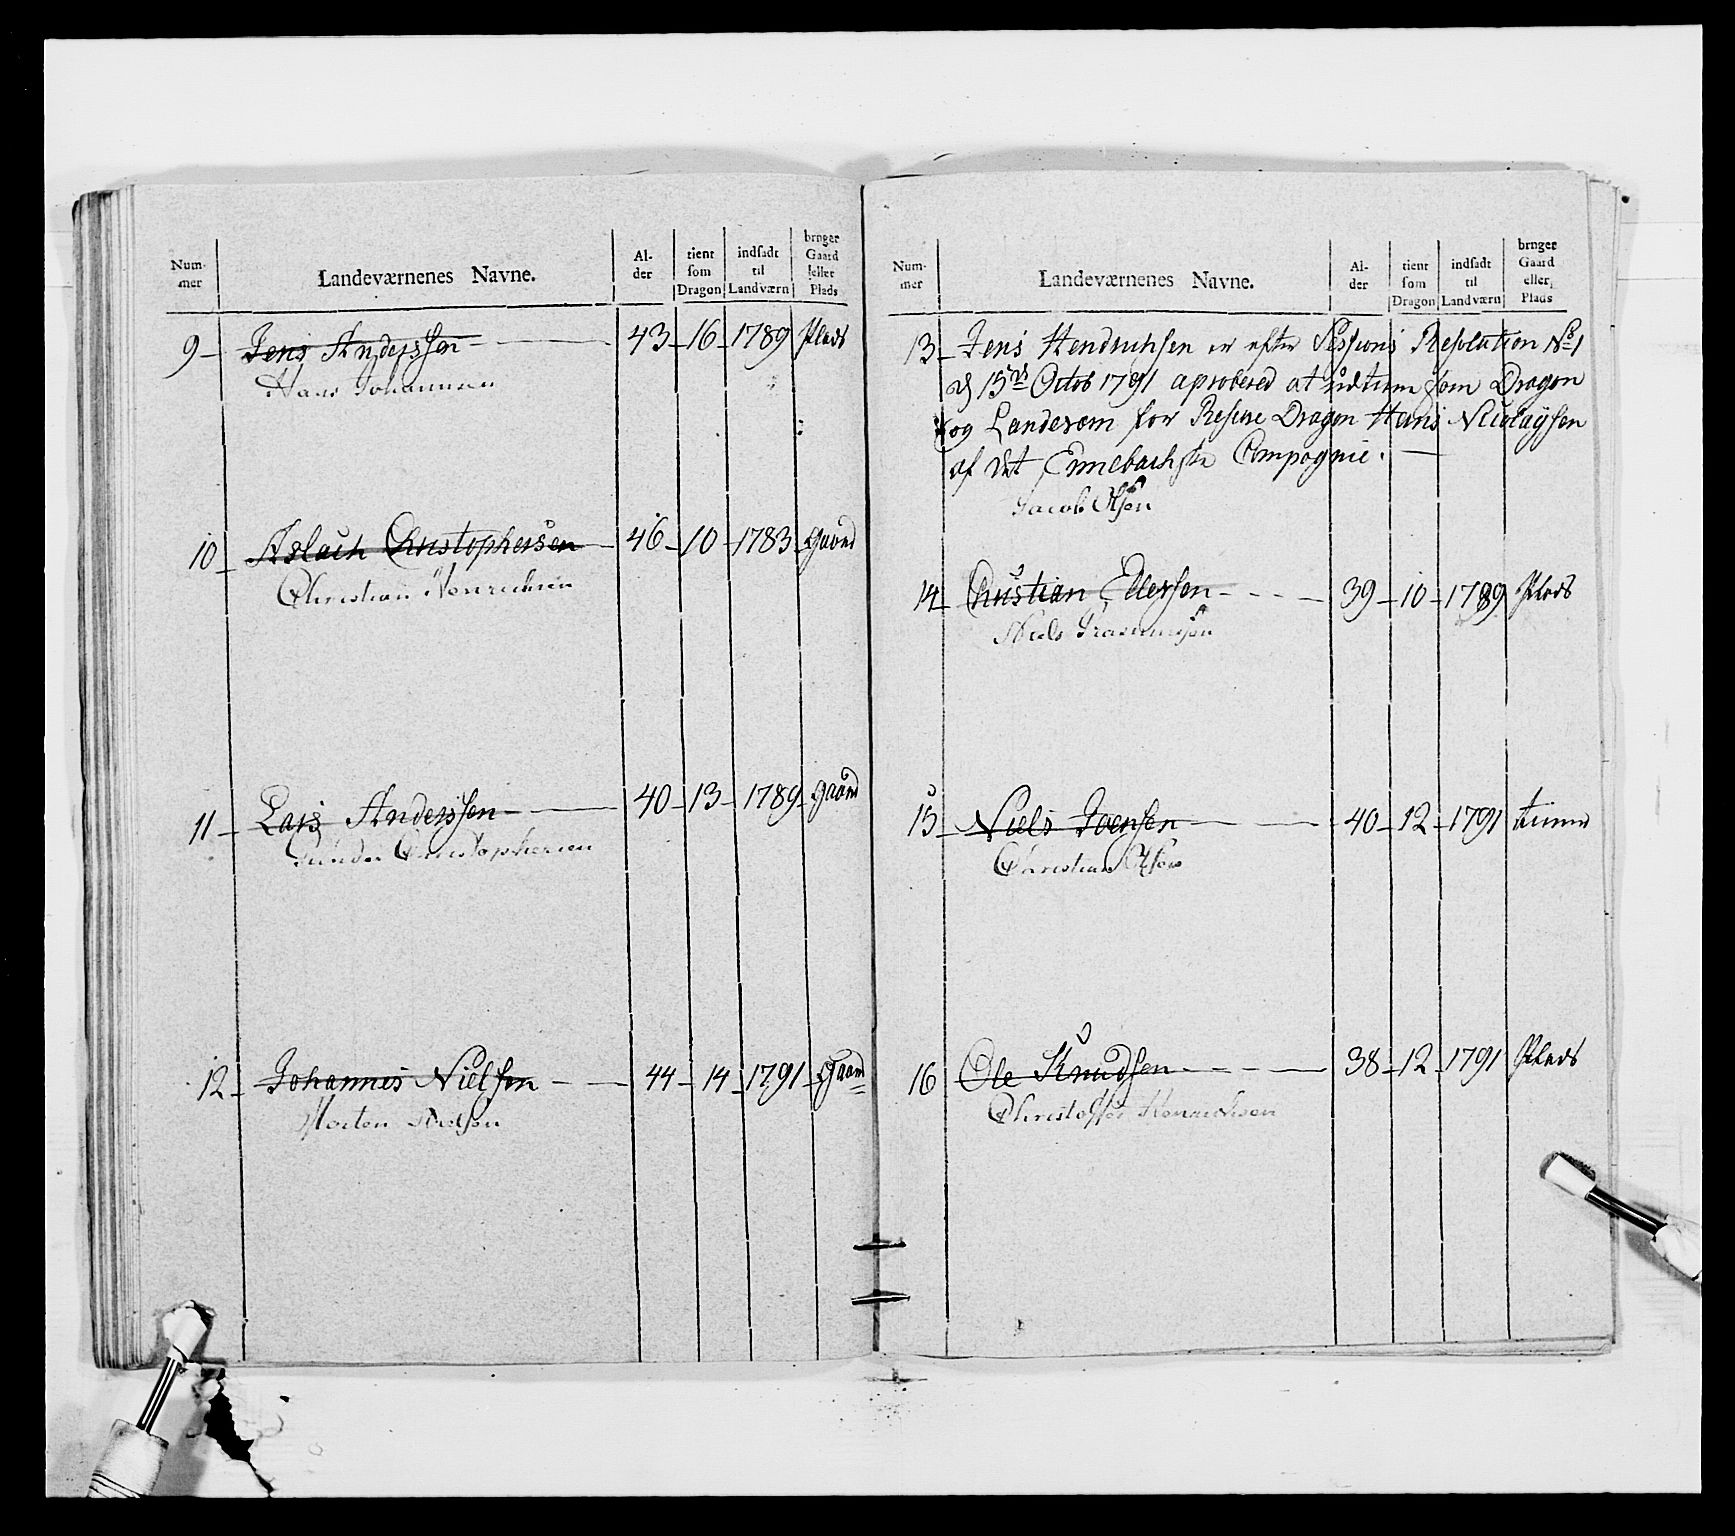 Num-
mer
Landeværnenes Navne.
Al-
der
tient
som
Dragon
indsadt
til
Landværn
bruger
Gaard
eller
Plads
9 - Jens Anderssen - 43 - 16 - 1789 Plads
Hans Johannesen
10 - Aslach Christophersen - 46 - 10 - 1783 - Gaard
Christian Henrichsen
11 - Lars Anderssen - 40 - 13 - 1789 - gaard
Gunder Christophersen
12 - Johannes Nielsen - 44 - 14 - 1791 - Gaard
Morten Nielsen
Num-
mer
Landeværnenes Navne.
Al-
der
tient
som
Dragon
indsadt
til
Landværn
bruger
Gaard
eller
Plads
13 - Jens Hendrichsen er efter Sessions Resolution No 1
d 15de Octob 1791 aprobered at udtiene som Dragon
og Landevern for Reserve Dragon Hans Nicolaysen
af det Ennebachske Compagnie. -
Jacob Olsen
14 - Christian Ellefsen - 39 - 10 - 1789 Plads
Niels Rasmusen
15 - Niels Joensen - 40 - 12 - 1791
Christian Olsen
16 Ole Knudsen - 38 - 12 - 1791 Plads
Christoffer Henrichsen